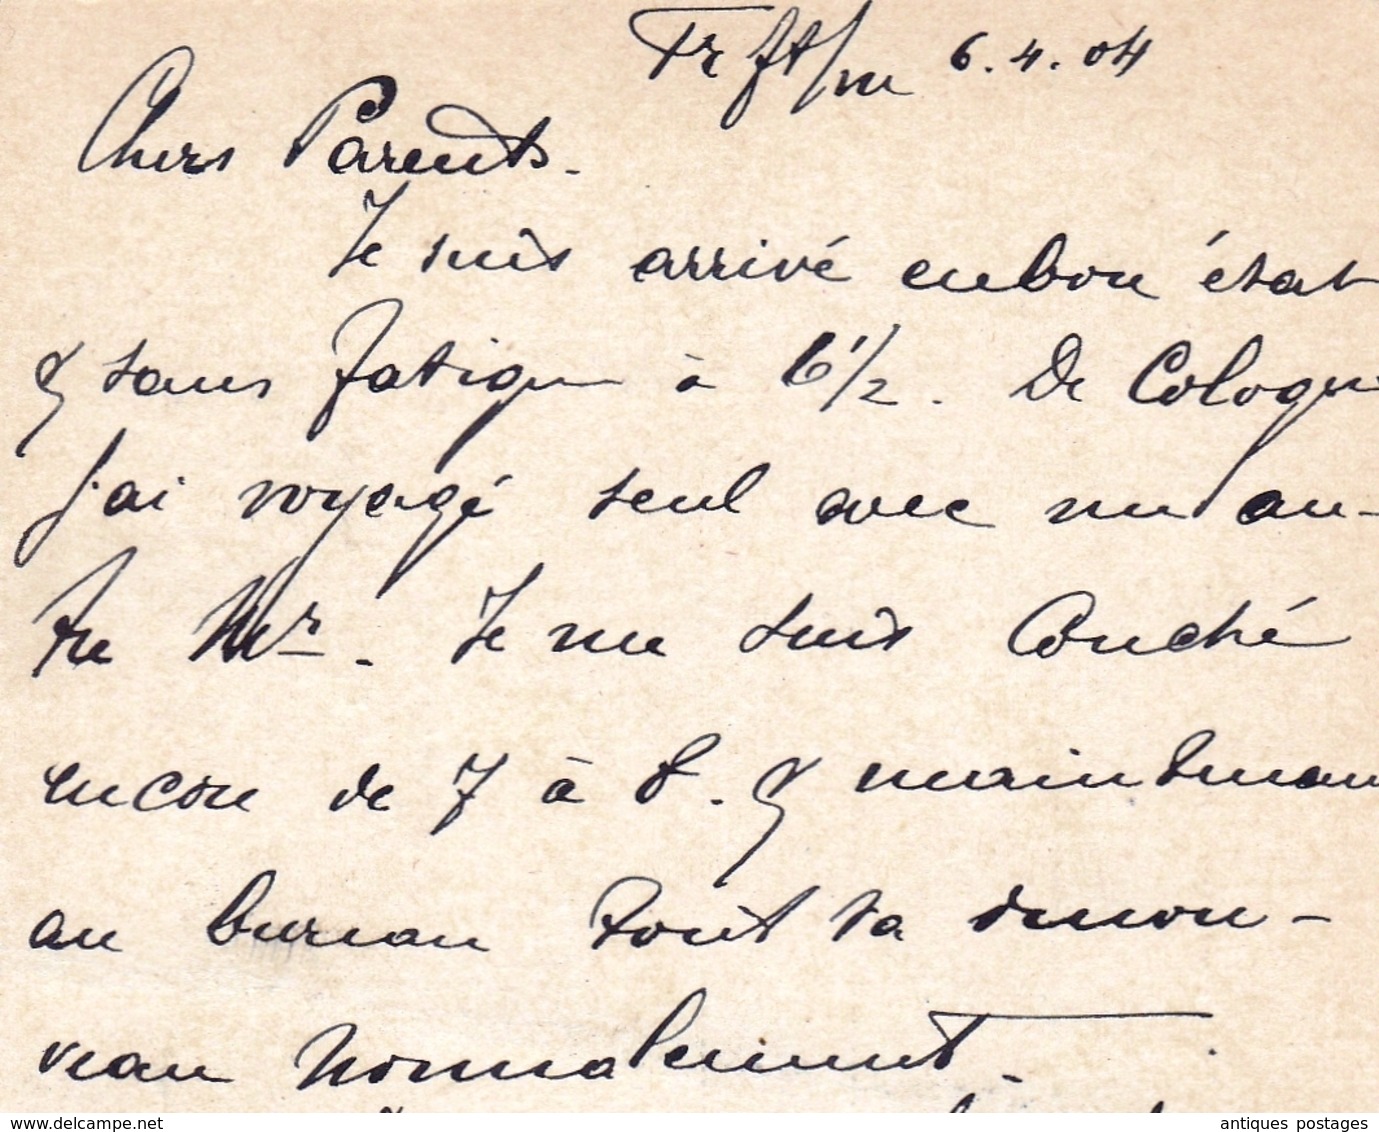 Fr ft/m 6.4.04
Chers Parents.
Je suis arrivé en bon état
& sans fatigue à 6 1/2. De Cologne
j'ai voyagé seul avec un au-
tre Mr. Je me suis couché
encore de 7 à 8. & maintenan
au bureau tout va de nou-
veau normalement.
antiques postages